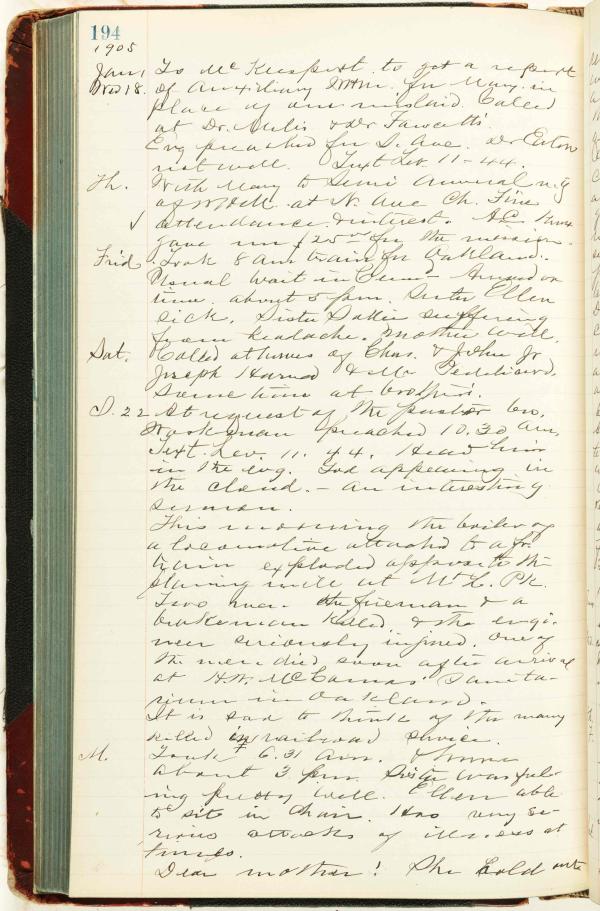 194
1905
Jan. To McKeesport to get a report
Wed 18. of Auxiliary for Mary in
place of one mislaid. Called
at Dr. & Dr Fawcett's.
Evg preached for S. Ave. Dr Eaton
not well. Text Lev. 11-44.
Th. With Mary to Semi Annual m'g
of at N. Ave Ch. Fine
attendance & interest.
gave me $25 for the mission.
Frid. Took 8 Am train for Oakland.
Usual wait in Cumd. Arrived on
time, about 5 pm. Sister Ellen
sick, Sister Sallie suffering
from headache. Mother well.
Sat. Called at homes of Chas. & John Jr
Joseph Harned & Mr
Some time at
S. 22 At request of the pastor bro.
preached 10.30 am,
Text. Lev. 11. 44. Heard him
in the evg. God appearing in
the cloud. - an interesting
sermon.
This morning the boiler of
a locomotive attached to a fr.
train exploded opposite the
planing mill at Mt L. Pk.
Two men. the fireman & a
brakeman killed, & the engi-
neer seriously injured. One of
the men died soon after arrival
at H.W. McComas' Sanita-
rium in Oakland.
It is sad to think of the many
killed in railroad service.
M. Took 6.31 Am. & home
about 3 pm. Sister was feel-
ing pretty well. Ellen able
to sit in chair. Has very se-
rious attacks of illness at
times.
Dear mother! She hold